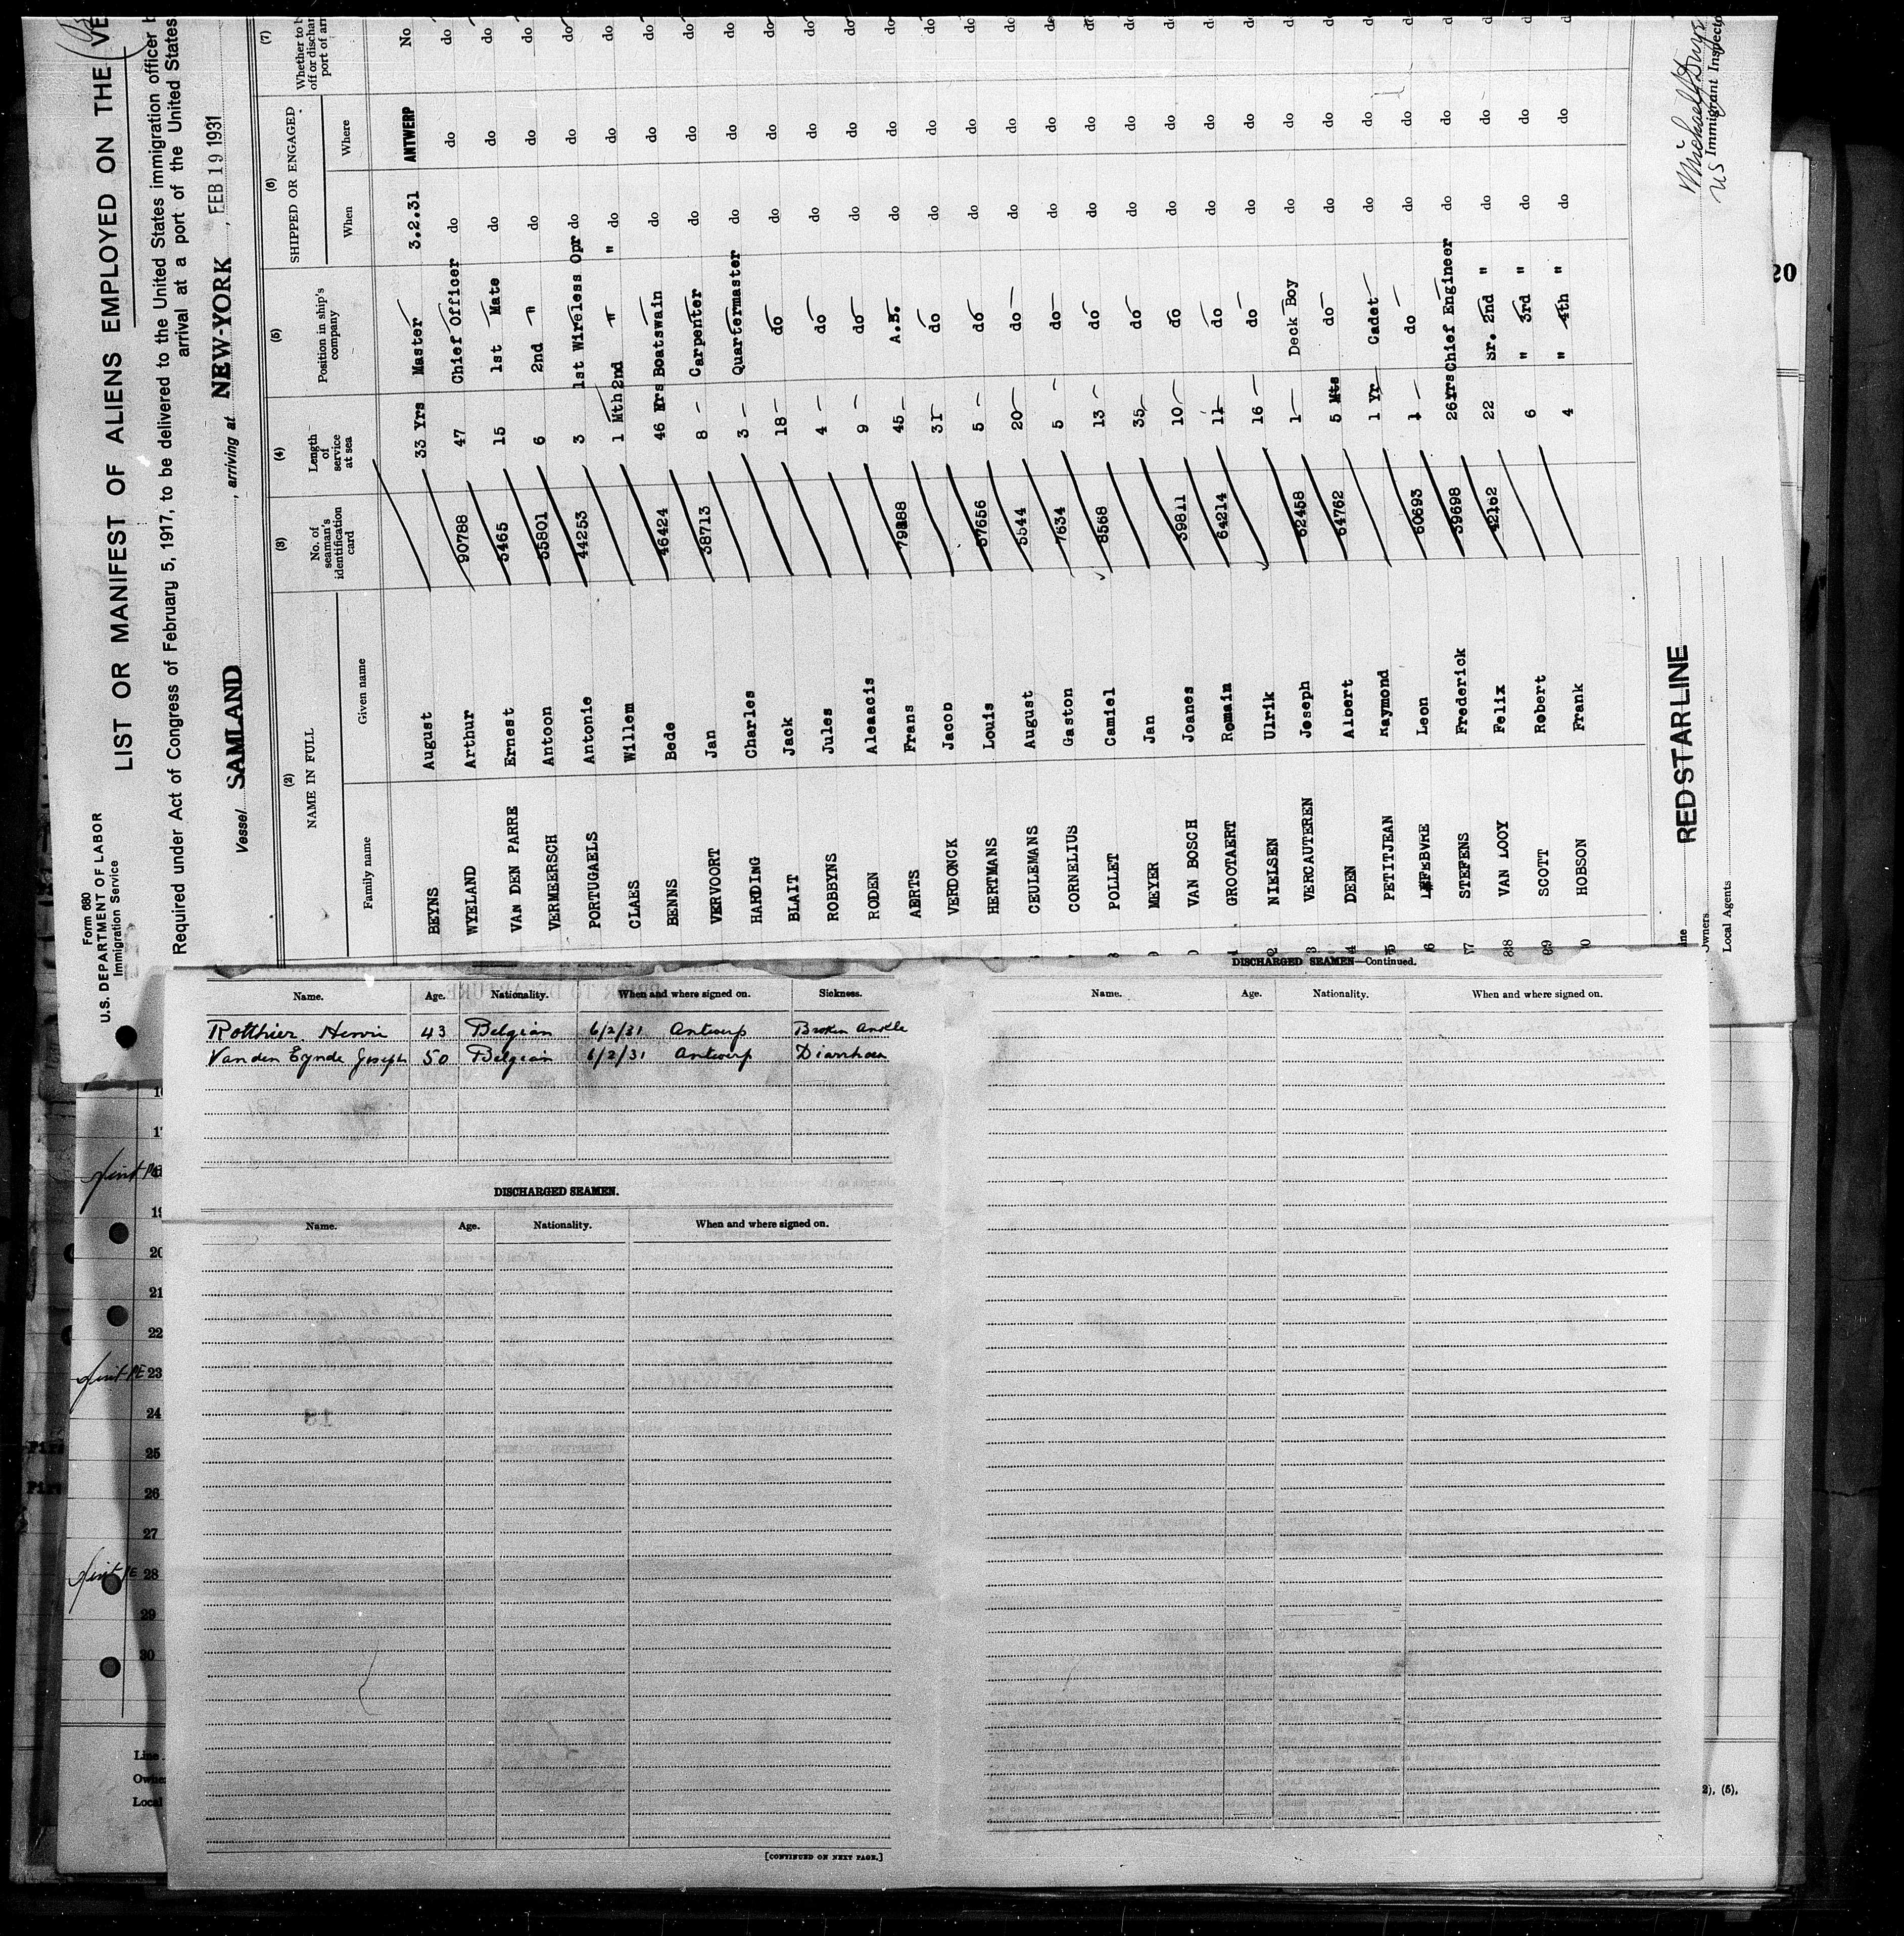 Form 680
U.S. DEPARTMENT OF LABOR
Immigration Service
LIST OR MANIFEST OF ALIENS EMPLOYED ON THE VE
Required under Act of Congress of February 5, 1917, to be delivered to the United States immigration officer b
arrival at a port of the United States
Vessel SAMLAND, arriving at NEW-YORK, FEB 19 1931
(2) (3) (4) (5) (6) (7)
NAME IN FULL No. of seaman's identification card Length of service at sea Position in ship's company SHIPPED OR ENGAGED Whether to b
off or dischar
port of arr
Family name Given name When Where
BEYNS August 33 Yrs Master 3.2.31 ANTWERP No
WYELAND Arthur 90788 47 Chief Officer do do do
VAN DEN PARRE Ernest 5465 15 1st Mate do do do
VERMEERSCH Antoon 35801 6 2nd " do do do
PORTUGAELS Antonie 44253 3 1st Wireless Opr do do do
CLAES Willem 1 Mth 2nd " " do do
BENNS Bede 46424 46 Yrs Boatswain do do do
VERVOORT Jan 38713 8 Carpenter do do do
HARDING Charles 3 Quartermaster do do do
BLAIT Jack 18 do do do do
ROBBYNS Jules 4 do do do do
RODEN Aleaacis 9 do do do do
AERTS Frans 45 A.B. do do do
VERDONCK Jacob 31 do do do do
HERTMANS Louis 37656 5 do do do do
CEULEMANS August 5544 20 do do do do
CORNELIUS Gaston 7634 5 do do do do
POLLET Camiel 8568 13 do do do do
MEYER Jan 35 do do do do
VAN BOSCH Joanes 39811 10 do do do do
GROOTAERT Romain 64214 11 do do do do
NIELSEN Ulrik 16 do do do do
VERCAUTEREN Joseph 62458 1 Deck Boy do do do
DEEN Albert 64762 5 Mts do do do do
PETITJEAN Raymond 1 Yr Cadet do do do
LEFEBVRE Leon 60693 1 do do do do
STEFENS Frederick 39698 26 Yrs Chief Engineer do do do
VAN LOOY Felix 42162 22 Sr. 2nd " do do do
SCOTT Robert 6 " 3rd " do do do
HOBSON Frank 4 " 4th " do do do
RED STAR LINE
Owners
Local Agents
US Immigrant Inspector
Name. Age. Nationality. When and where signed on. Sickness.
Rotthier Henri 43 Belgian 6/2/31 Antwerp Broken Ankle
Van den Eynde Joseph 50 Belgian 6/2/31 Antwerp Diarrhoea
DISCHARGED SEAMEN.
Name. Age. Nationality. When and where signed on.
[CONTINUED ON NEXT PAGE.]
DISCHARGED SEAMEN—Continued.
Name. Age. Nationality. When and where signed on.
20
20
21
22
23
24
25
26
27
28
29
30
Line
Owne
Local
2), (5),